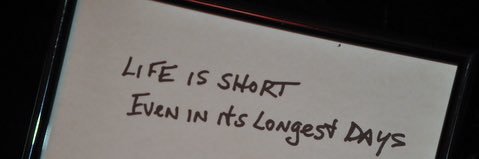 LIFE IS SHORT
EVEN IN ITS LONGEST DAYS